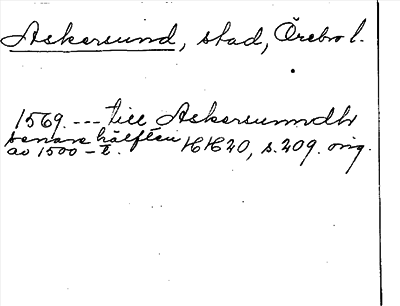 Askersund, stad, Örebro l.
1569. --- till Askersunndh
senare hälften
av 1500-t. HH 20, s. 209. orig.